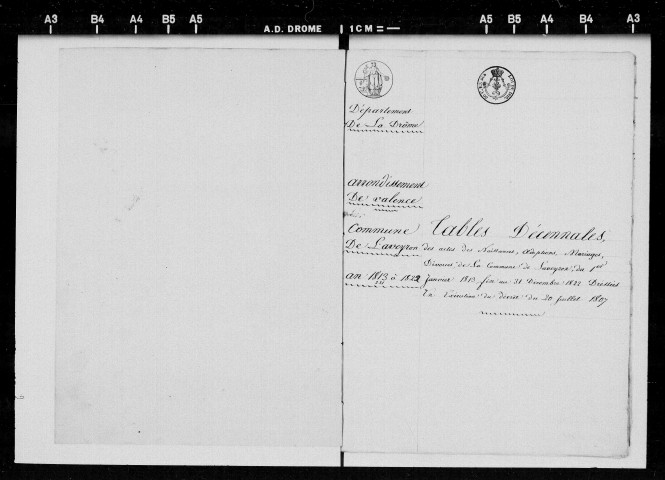 A3 B4 A4 B5 A5 A.D. DROME 1CM A5 B5 A4 B4 A3
Département
De La Drôme
arrondissement
De valence
Commune
De Laveyron
an 1813 à 1822
Tables Décennales,
des actes des Naissances, adoptions, Mariages,
Divorces de La Commune de Laveyron, du 1er
Janvier 1813 fin au 31 Decembre 1822 Dressées
En Execution du decret du 20 Juillet 1807